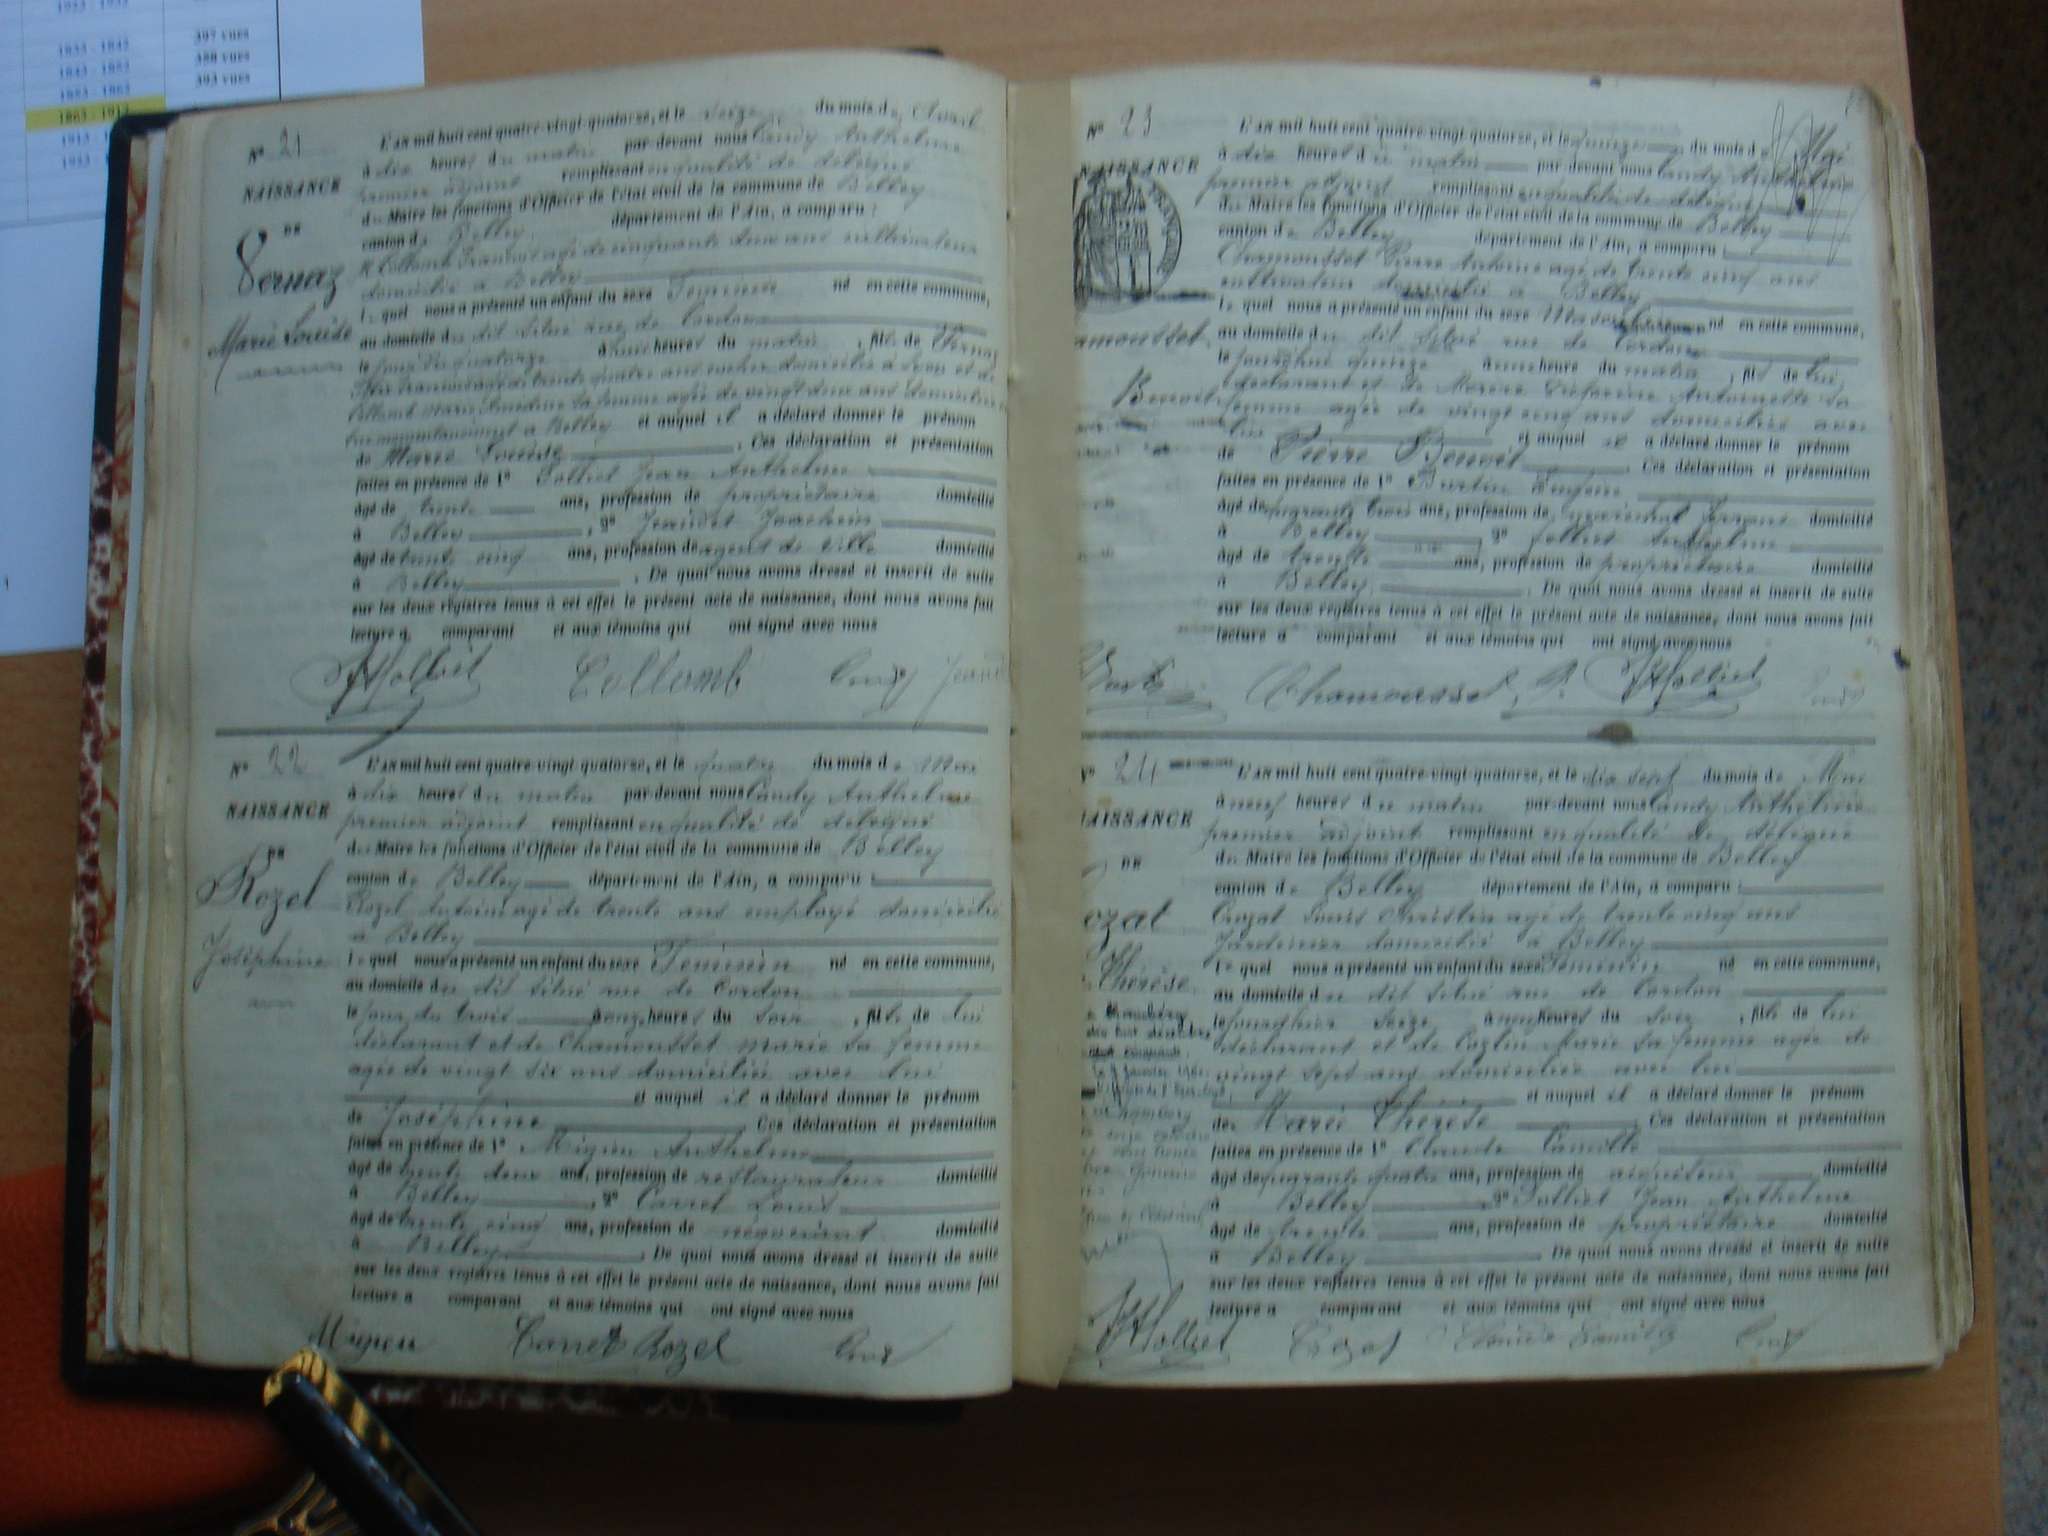 1833 - 1842 397 vues
1843 - 1852 388 vues
1853 - 1862 393 vues
1863 - 1912
N° 21
NAISSANCE
DE
Vernaz
Marie Louise
L'an mil huit cent quatre-vingt-quatorze, et le seize du mois de Avril
à dix heures du matin par-devant nous Candy Anthelme
premier adjoint remplissant en qualité de délégué
du Maire les fonctions d'Officier de l'état civil de la commune de Belley
canton de Belley, département de l'Ain, a comparu :
Collomb François agé de cinquante deux ans cultivateur
domicilié à Belley
lequel nous a présenté un enfant du sexe Féminin né en cette commune,
au domicile du dit situé rue de Cordon
le jour du quatorze à heures du matin, fils de Vernaz
François agé de trente quatre ans cocher domicilié à Lyon et de
Collomb Marie sa femme agée de vingt deux ans domiciliée
momentanément à Belley et auquel il a déclaré donner le prénom
de Marie Louise. Ces déclaration et présentation
faites en présence de 1° Folliet Jean Anthelme
âgé de trente ans, profession de propriétaire domicilié
à Belley, 2° Jeandet Joachim
âgé de trente cinq ans, profession de agent de ville domicilié
à Belley. De quoi nous avons dressé et inscrit de suite
sur les deux registres tenus à cet effet le présent acte de naissance, dont nous avons fait
lecture a comparant et aux témoins qui ont signé avec nous
JAFolliet Collomb Candy Jeandet
N° 22
NAISSANCE
DE
Rozel
Joséphine
L'an mil huit cent quatre-vingt-quatorze, et le quatre du mois de Mai
à dix heures du matin par-devant nous Candy Anthelme
premier adjoint remplissant en qualité de délégué
du Maire les fonctions d'Officier de l'état civil de la commune de Belley
canton de Belley département de l'Ain, a comparu :
Rozel Antoine agé de trente ans employé domicilié
à Belley
lequel nous a présenté un enfant du sexe Féminin né en cette commune,
au domicile du dit situé rue de Cordon
le jour du trois à onze heures du soir, fils de lui
déclarant et de Chamousset Marie sa femme
agée de vingt six ans domiciliée avec lui
et auquel il a déclaré donner le prénom
de Joséphine Ces déclaration et présentation
faites en présence de 1° Migieu Anthelme
âgé de trente deux ans, profession de restaurateur domicilié
à Belley, 2° Carrel Louis
âgé de trente cinq ans, profession de négociant domicilié
à Belley. De quoi nous avons dressé et inscrit de suite
sur les deux registres tenus à cet effet le présent acte de naissance, dont nous avons fait
lecture a comparant et aux témoins qui ont signé avec nous
Migieu Carrel Rozel Candy
N° 23
NAISSANCE
amousset
Benoit
L'an mil huit cent quatre-vingt-quatorze, et le quinze du mois de Mai
à dix heures du matin par-devant nous Candy Anthelme
premier adjoint remplissant en qualité de délégué
du Maire les fonctions d'Officier de l'état civil de la commune de Belley
canton de Belley département de l'Ain, a comparu :
Chamousset Pierre Antoine agé de trente cinq ans
cultivateur domicilié à Belley
lequel nous a présenté un enfant du sexe Masculin né en cette commune,
au domicile du dit situé rue de Cordon
le jourd'hui quinze à une heure du matin, fils de lui
déclarant et de Antoinette sa
femme agée de vingt cinq ans domiciliée avec
lui et auquel il a déclaré donner le prénom
de Pierre Benoit. Ces déclaration et présentation
faites en présence de 1° Burtin
âgé de quarante trois ans, profession de maréchal ferrant domicilié
à Belley, 2° Folliet Anthelme
âgé de trente ans, profession de propriétaire domicilié
à Belley. De quoi nous avons dressé et inscrit de suite
sur les deux registres tenus à cet effet le présent acte de naissance, dont nous avons fait
lecture a comparant et aux témoins qui ont signé avec nous
Chamousset P. JAFolliet
N° 24
NAISSANCE
DE
ozat
Thérèse
L'an mil huit cent quatre-vingt-quatorze, et le dix sept du mois de Mai
à neuf heures du matin par-devant nous Candy Anthelme
premier adjoint remplissant en qualité de délégué
du Maire les fonctions d'Officier de l'état civil de la commune de Belley
canton de Belley département de l'Ain, a comparu :
Crozat Louis Christin agé de trente cinq ans
Jardinier domicilié à Belley
lequel nous a présenté un enfant du sexe Féminin né en cette commune,
au domicile du dit situé rue de Cordon
le jour d'hier seize à heures du soir, fils de lui
déclarant et de Marie sa femme agée de
vingt sept ans domiciliée avec lui
et auquel il a déclaré donner le prénom
de Marie Thérèse. Ces déclaration et présentation
faites en présence de 1° Claude Camille
âgé de quarante quatre ans, profession de domicilié
à Belley, 2° Folliet Jean Anthelme
âgé de trente ans, profession de propriétaire domicilié
à Belley. De quoi nous avons dressé et inscrit de suite
sur les deux registres tenus à cet effet le présent acte de naissance, dont nous avons fait
lecture a comparant et aux témoins qui ont signé avec nous
JAFolliet Crozat Claude Camille Candy